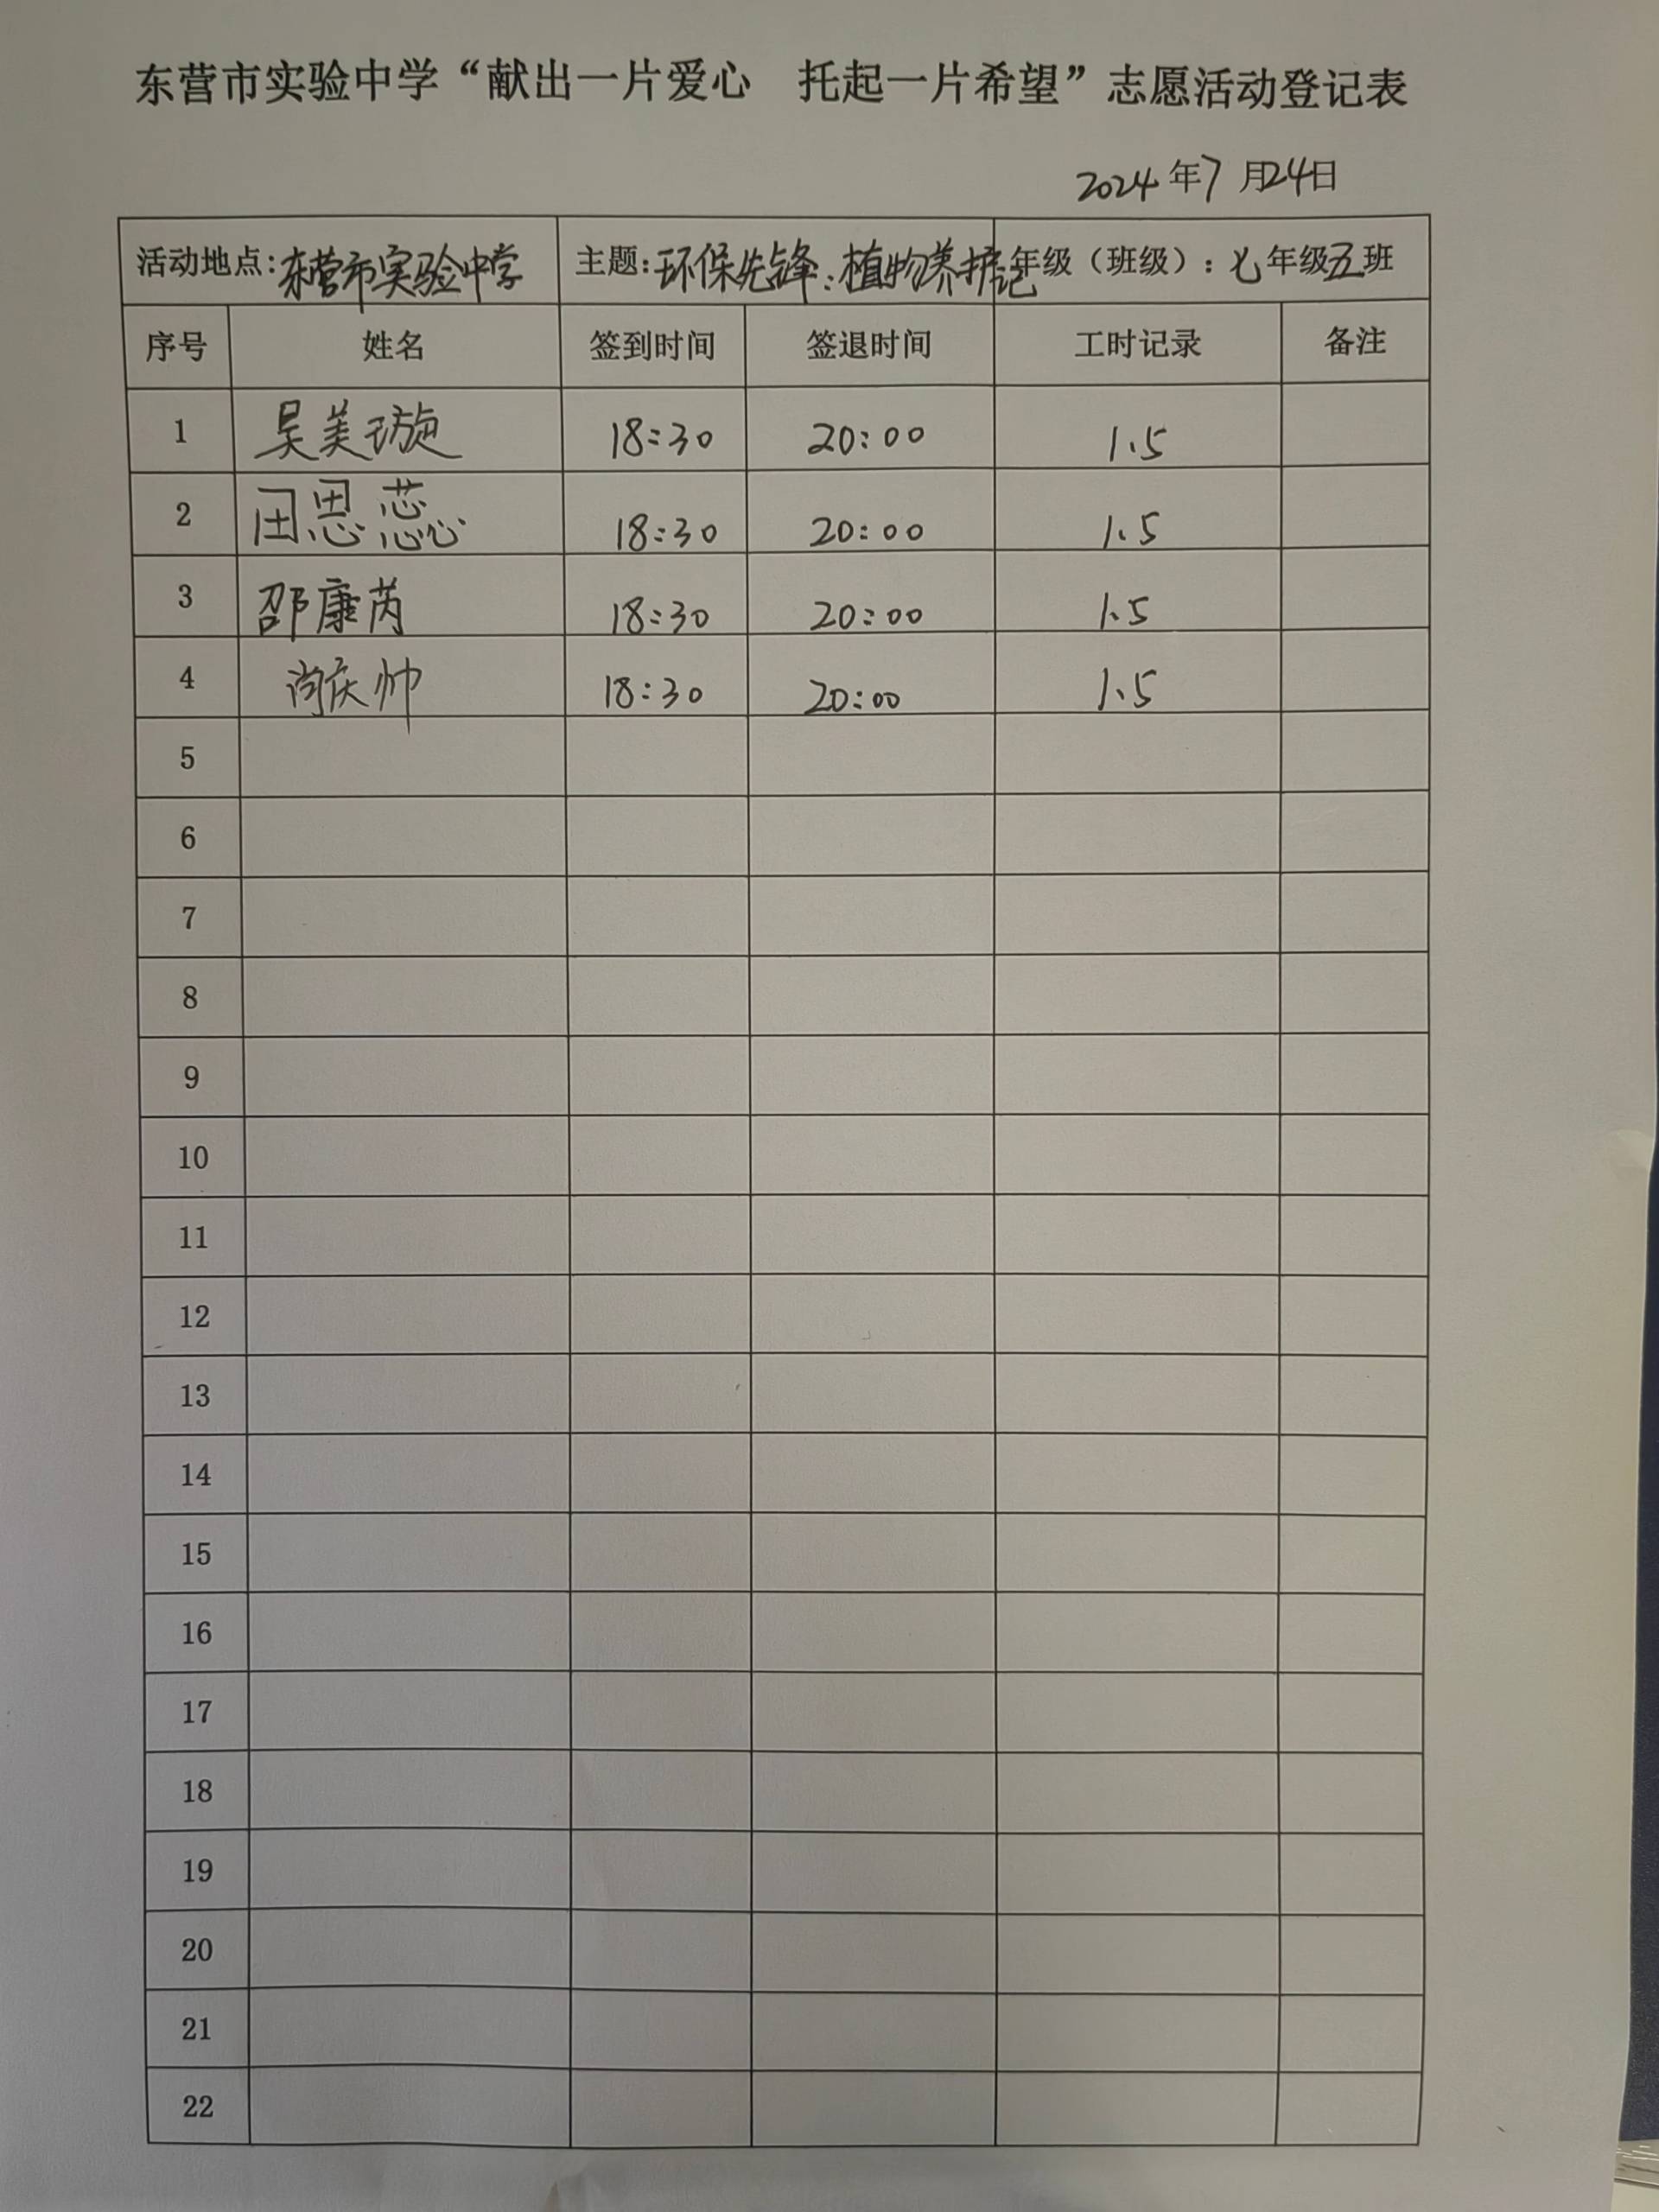 东营市实验中学“献出一片爱心 托起一片希望”志愿活动登记表
2024年7月24日
活动地点:东营市实验中学 主题:环保先锋:植物养护记 年级（班级）:七年级五班
序号 姓名 签到时间 签退时间 工时记录 备注
1 吴美璇 18:30 20:00 1.5
2 田思蕊 18:30 20:00 1.5
3 邵康芮 18:30 20:00 1.5
4 庆帅 18:30 20:00 1.5
5
6
7
8
9
10
11
12
13
14
15
16
17
18
19
20
21
22